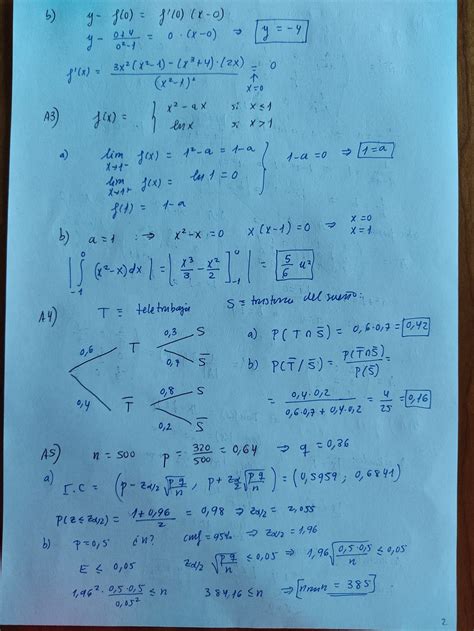 b) y - f(0) = f'(0) (x-0)
y - (0+4)/(0²-1) = 0 · (x-0) ⇒ y = -4
f'(x) = (3x²(x²-1) - (x³+4)·(2x))/(x²-1)² = 0
↑
x=0
A3) f(x) = { x² - ax si x ≤ 1
ln x si x > 1
a) lim x→1⁻ f(x) = 1² - a = 1-a
lim x→1⁺ f(x) = ln 1 = 0 } 1-a = 0 ⇒ 1=a
f(1) = 1-a
b) a = 1 ⇒ x² - x = 0 x(x-1) = 0 ⇒ x=0
x=1
|∫₋₁⁰ (x²-x)dx| = |[x³/3 - x²/2]₋₁⁰| = 5/6 u²
A4) T ≡ teletrabaja S ≡ trastorno del sueño
0,6 T 0,3 S
0,7 S̅
0,4 T̅ 0,8 S
0,2 S̅
a) P(T∩S̅) = 0,6·0,7 = 0,42
b) P(T̅/S̅) = P(T̅∩S̅)/P(S̅) =
= (0,4·0,2)/(0,6·0,7 + 0,4·0,2) = 4/25 = 0,16
A5) n = 500 p = 320/500 = 0,64 ⇒ q = 0,36
a)
I.C = (p - zα/2 √(p q/n) , p + zα/2 √(p q/n)) = (0,5959 ; 0,6841)
P(Z ≤ zα/2) = (1+0,96)/2 = 0,98 ⇒ zα/2 = 2,055
b) p = 0,5 ¿n? conf = 95% ⇒ zα/2 = 1,96
E ≤ 0,05 zα/2 √(p q/n) ≤ 0,05 ⇒ 1,96 √(0,5·0,5/n) ≤ 0,05
1,96² · 0,5·0,5/0,05² ≤ n 384,16 ≤ n ⇒ [nmin = 385]
2